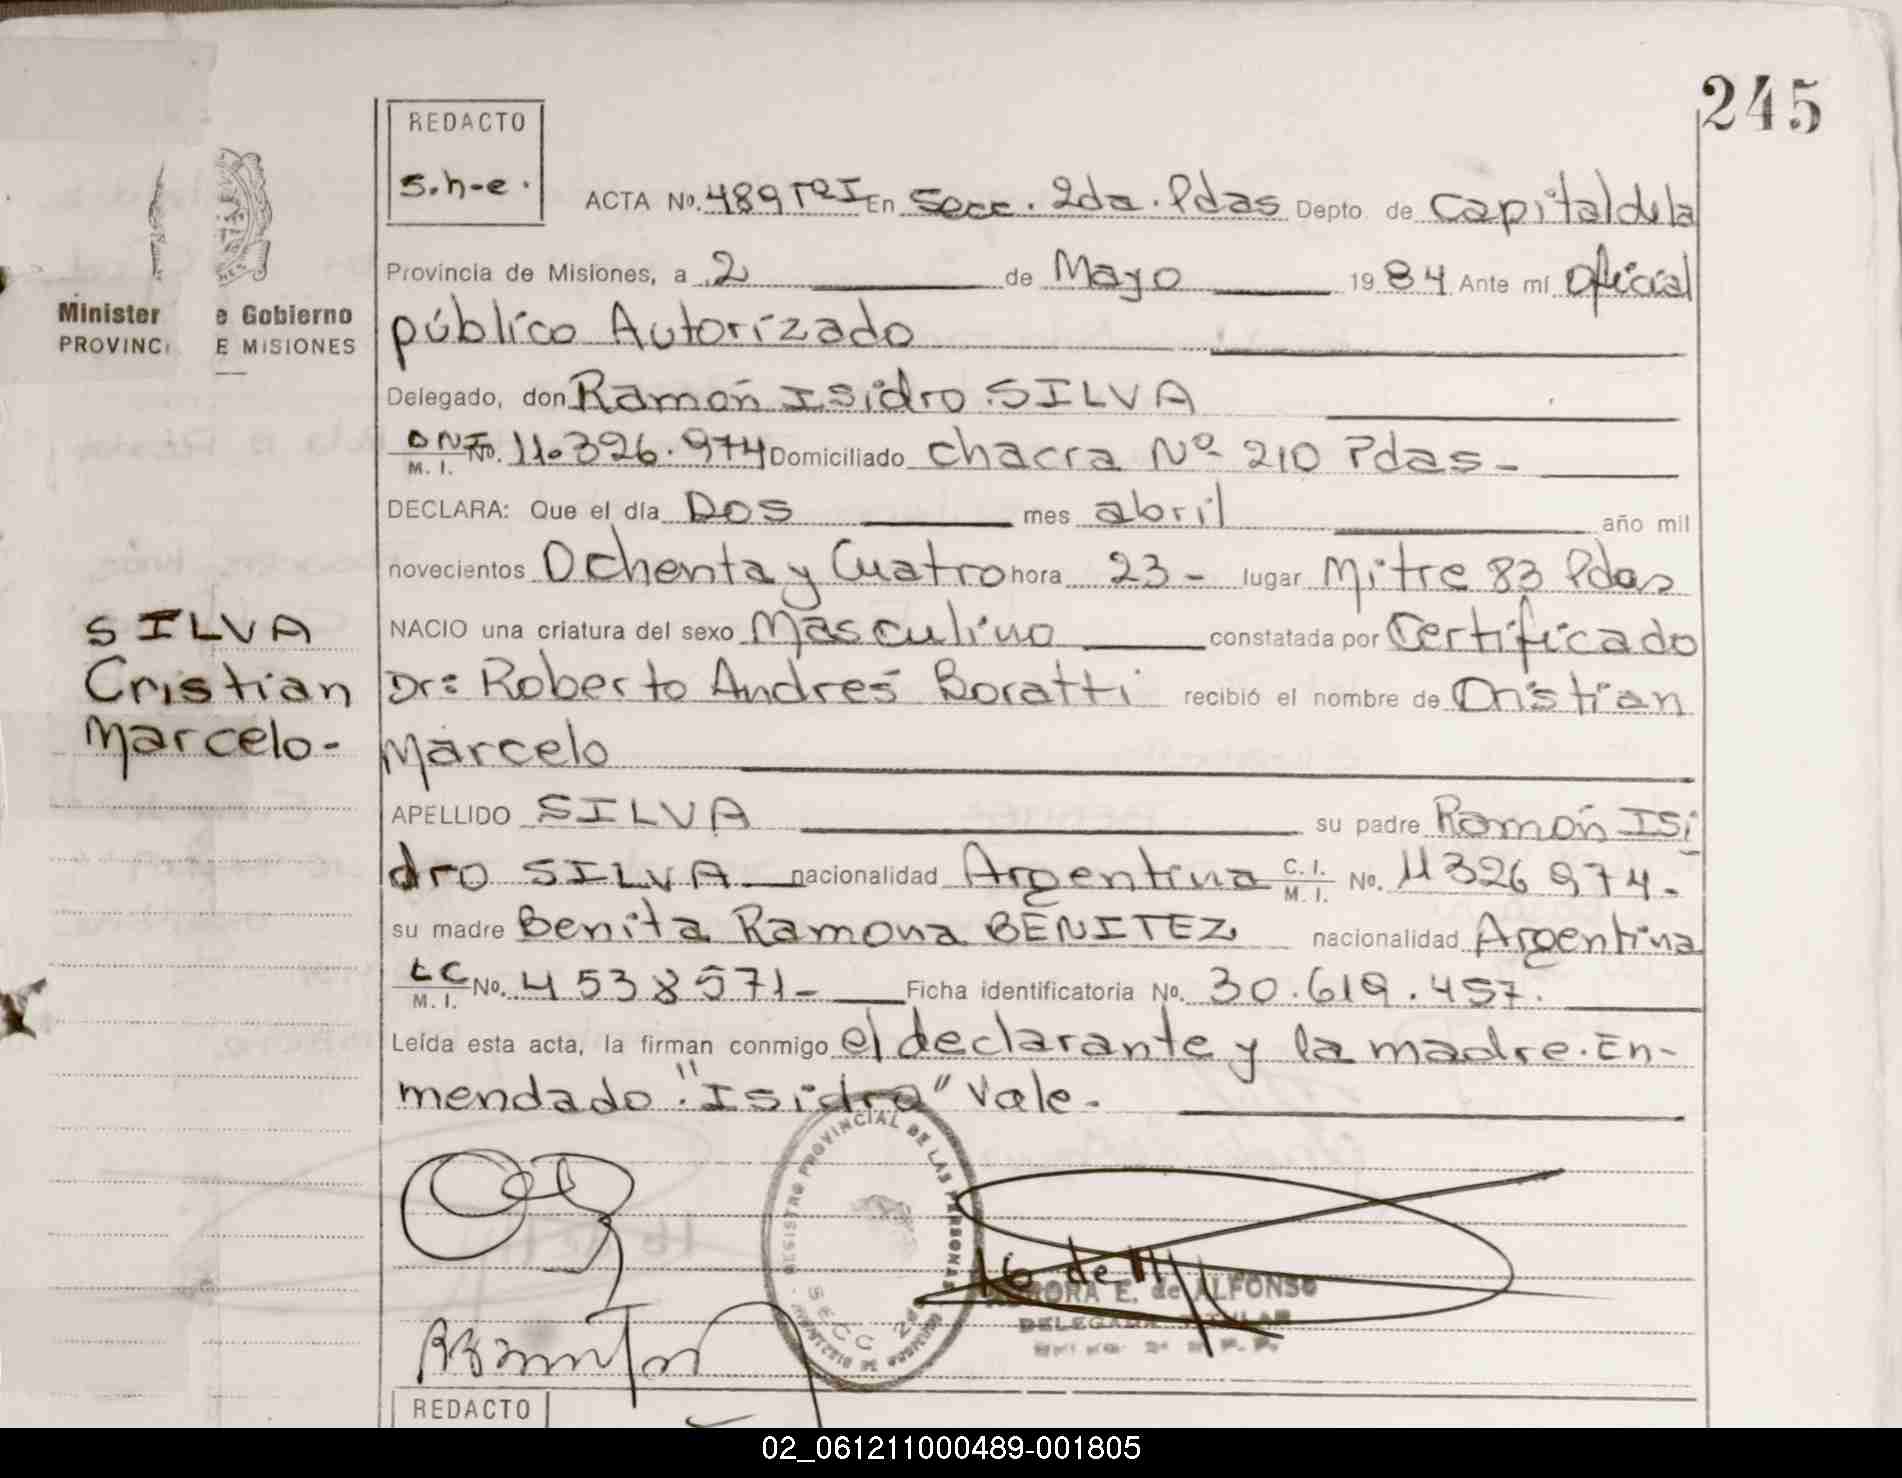 245
REDACTO
s.h-e.
ACTA No. 489 TºI En Secc. 2da. Pdas Depto. de Capital de la
Provincia de Misiones, a 2 de Mayo 1984 Ante mí oficial
Minister e Gobierno
PROVINCI E MISIONES
público Autorizado
Delegado, don Ramón Isidro SILVA
DNI M. I. No. 11.326.974 Domiciliado chacra Nº 210 Pdas-
DECLARA: Que el día Dos mes abril año mil
novecientos Ochenta y Cuatro hora 23- lugar Mitre 83 Pdas
SILVA
Cristian
Marcelo-
NACIO una criatura del sexo Masculino constatada por Certificado
Dr: Roberto Andrés Boratti recibió el nombre de Cristian
Marcelo
APELLIDO SILVA su padre Ramón Isi
dro SILVA nacionalidad Argentina C. I. M. I. No. 11326974-
su madre Benita Ramona BENITEZ nacionalidad Argentina
LC M. I. No. 4538571- Ficha identificatoria No. 30.619.457.
Leída esta acta, la firman conmigo el declarante y la madre. En-
mendado "Isidro" Vale-
REGISTRO PROVINCIAL DE LAS PERSONAS
SECC 2ª
AURORA E. de ALFONSO
DELEGADA TITULAR
REDACTO
02_061211000489-001805